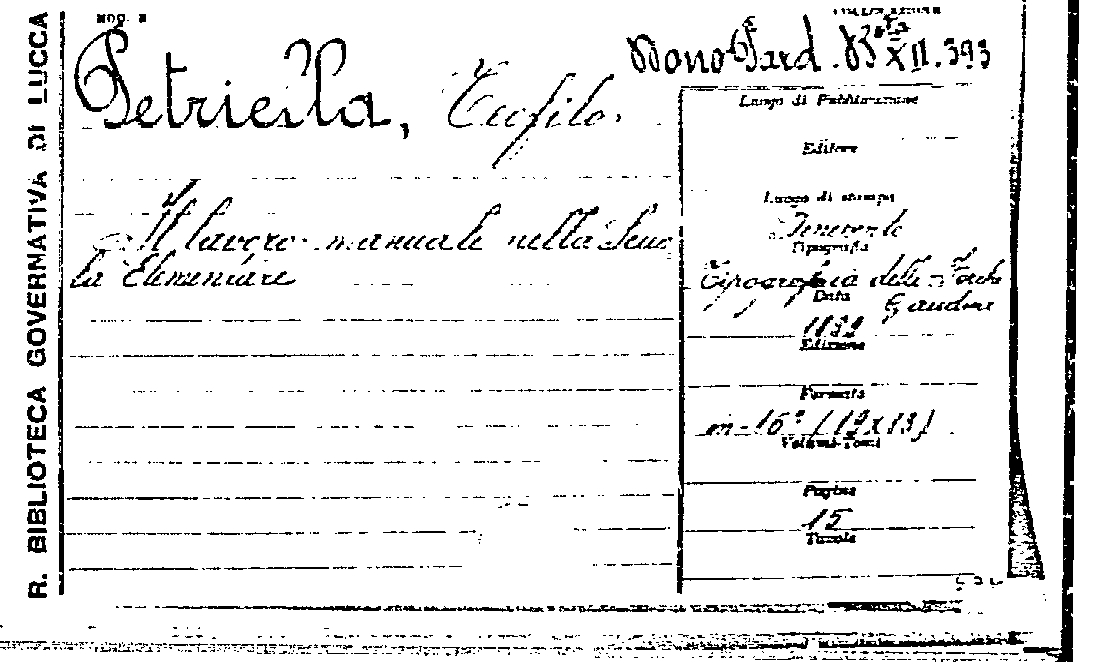 R. BIBLIOTECA GOVERNATIVA DI LUCCA
MOD. B
COLLOCAZIONE
Petriella, Teofilo.
Dono Pard. Bta XII. 393
Il lavoro manuale nella Scuo
la Elementare
Luogo di Pubblicazione
Editore
Luogo di stampa
Benevento
Tipografia
Tipografia delle Forche
Caudine
Data
Edizione
Formato
in-16° (19x13)
Volumi-Tomi
Pagine
15
Tavole